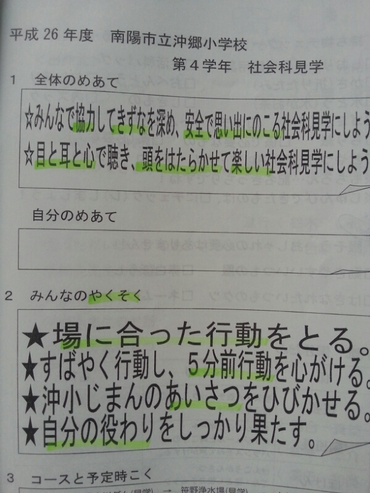 平成26年度 南陽市立沖郷小学校
第４学年 社会科見学
1 全体のめあて
☆みんなで協力してきずなを深め、安全で思い出にのこる社会科見学にしよう
☆目と耳と心で聴き、頭をはたらかせて楽しい社会科見学にしよう
自分のめあて
2 みんなのやくそく
★場に合った行動をとる。
★すばやく行動し、５分前行動を心がける。
★沖小じまんのあいさつをひびかせる。
★自分の役わりをしっかり果たす。
3 コースと予定時こく
→ 笹野浄水場(見学)